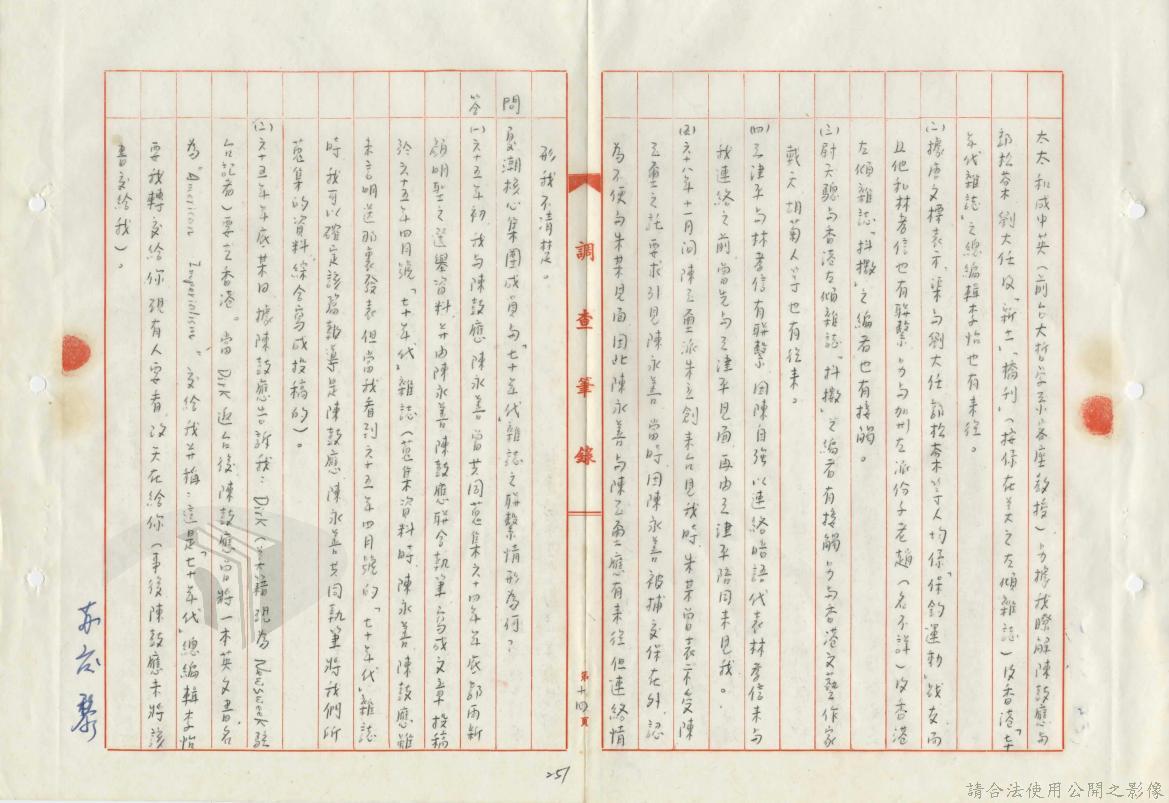 太太和成中英(前台大哲學系客座教授)另據我瞭解陳鼓應与
郭松棻劉大任及「新土」「橋刊」(按係在美之左傾雜誌)及香港「七
十年代雜誌」之總編輯李怡也有来往。
(二)據唐文標表示渠与劉大任郭松棻等人均係「保釣運動」战友而
且他和林孝信也有聯繫另与加州左派份子老趙(名不詳)及香港
左傾雜誌「抖擻」之編者也有接觸。
(三)尉天驄与香港左傾雜誌「抖擻」之編者有接觸另与香港文藝作家
戴天胡菊人等也有往来。
(四)王津平与林孝信有聯繫因陳自強以連絡暗語代表林孝信来与
我連絡之前曾先与王津平見面再由王津平陪同来見我。
(五)六十八年十一月间陳玉璽派朱立創来台見我時朱某曾表示受陳
玉璽之託要求引見陳永善當時因陳永善被捕交保在外認
為不便与朱某見面因此陳永善与陳玉璽應有来往但連絡情
調查筆錄
第十四頁
形我不清楚。
問 夏潮核心集團成員与「七十年代」雜誌之聯繫情形為何?
答 (一)六十五年初我与陳鼓應陳永善曾共同蒐集六十四年年底郭雨新
顏明聖之選舉資料并由陳永善陳鼓應聯合執筆寫成文章投稿
於六十五年四月號「七十年代」雜誌(蒐集資料時陳永善陳鼓應雖
未言明送那裏發表但當我看到六十五年四月號的「七十年代」雜誌
時我可以確定該篇報導是陳鼓應陳永善共同執筆將我們所
蒐集的資料綜合寫成投稿的)。
(二)六十五年年底某日據陳鼓應告訴我:Dirk(美籍現為Newsweek駐
台記者)要去香港。當Dirk返台後陳鼓應曾將一本英文書名
為"American Imperialism"交給我并稱:這是「七十年代」總編輯李怡
要我轉交給你現有人要看改天在給你(事後陳鼓應未將該
書交給我)。
苏庆黎
251
請合法使用公開之影像